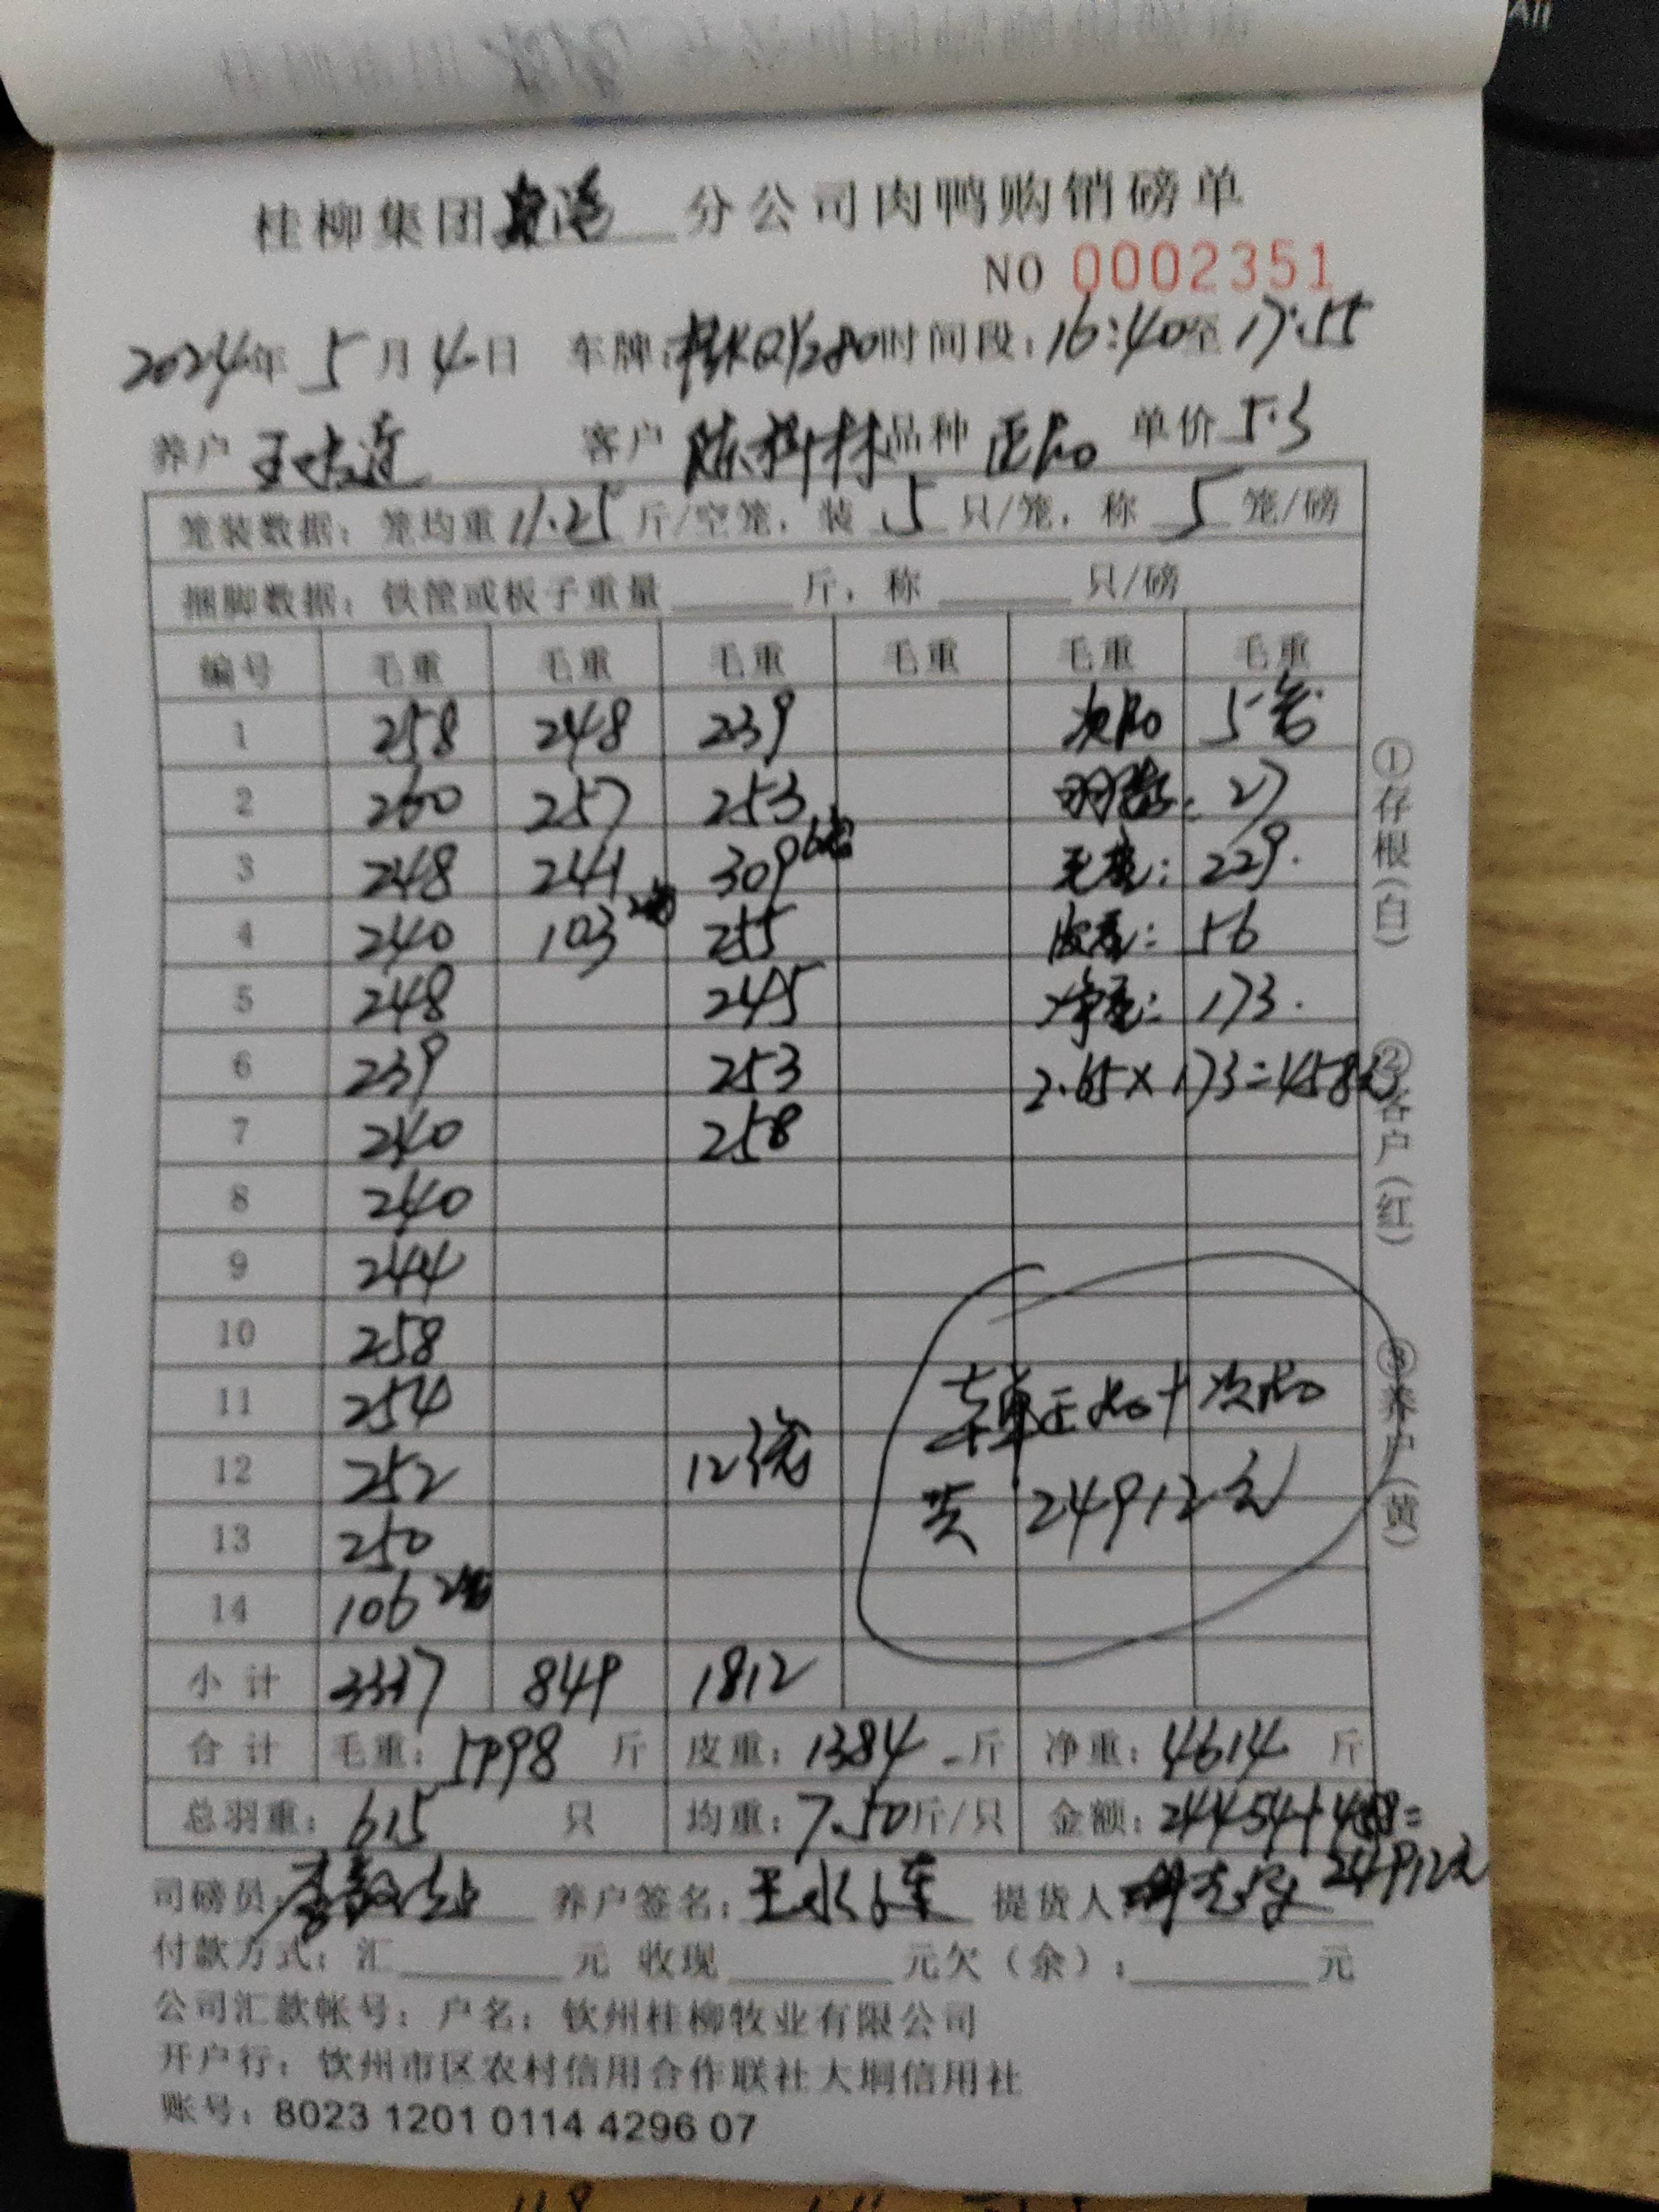 桂柳集团 分公司肉鸭购销磅单
NO 0002351
2024年 5月4日 车牌: 280时间段:16:40至17:55
养户 王 莲 客户 陈 林 品种 正品 单价 5.3
笼装数据:笼均重 11.25 斤/空笼,装 5 只/笼,称 5 笼/磅
捆脚数据:铁筐或板子重量 斤,称 只/磅
编号 毛重 毛重 毛重 毛重 毛重 毛重
1 258 248 239 次品 5笼
2 260 257 253 羽数: 27
3 248 241 309 6笼 毛重: 229.
4 240 103 2笼 255 皮重: 56
5 248 245 净重: 173.
6 239 253 2.65×173=458元
7 240 258
8 240
9 244
10 258
11 254 本单正品+次品
12 252 12笼
13 250 共 24912元
14 106 2笼
小计 3337 849 1812
合计 毛重:5998 斤 皮重:1384 斤 净重:4614 斤
总羽重: 615 只 均重:7.50斤/只 金额:24454+458=
24912元
司磅员: 养户签名:王 莲 提货人:
付款方式:汇 元 收现 元欠(余): 元
公司汇款帐号:户名:钦州桂柳牧业有限公司
开户行:钦州市区农村信用合作联社大垌信用社
账号:8023 1201 0114 4296 07
①存根(白)
②客户(红)
③养户(黄)